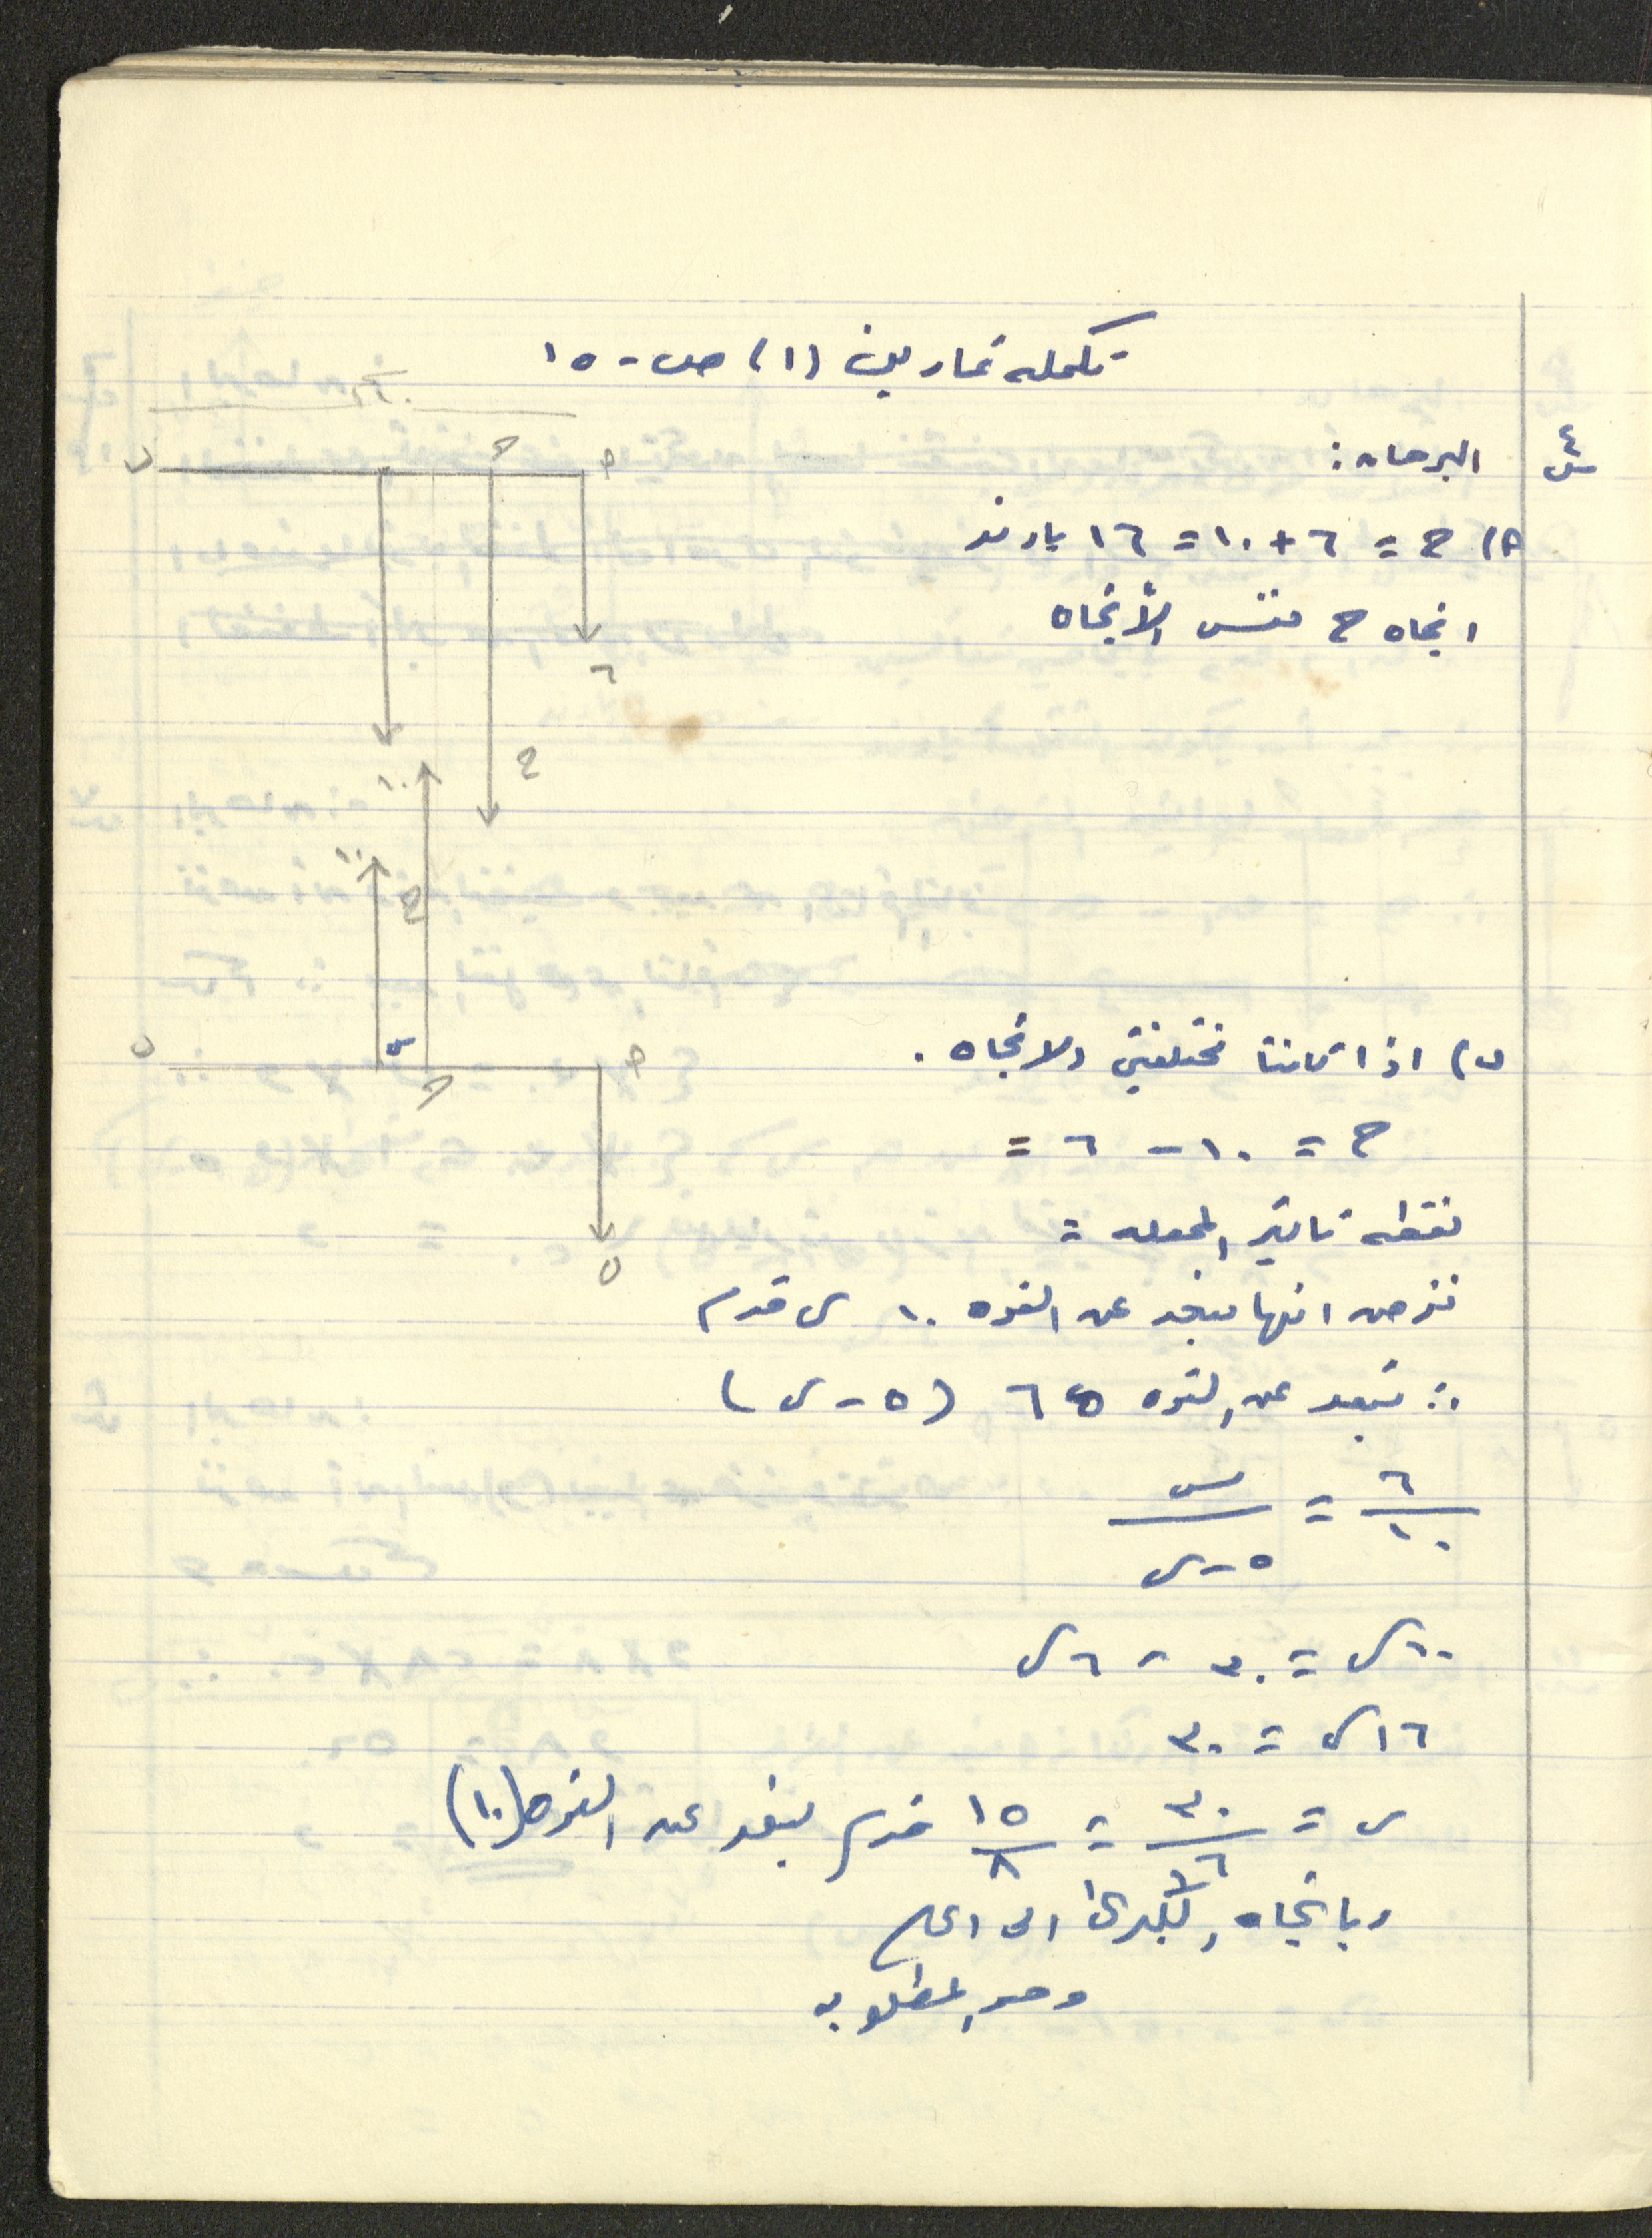 تكمله تمارين (١) ص - ١٥
س٤ البرهان:
١٦ = ١٠ + ٦ = ح (٩ باوند
اتجاه ح نفس الأتجاه
٦
ح
١٠
١٠
ح
ب) اذا كانتا مختلفتين الاتجاه .
ح = ١٠ - ٦ =
نقطه تاثير المحصله =
نفرض انها تبعد عن القوه ١٠ س قدم
∴ تبعد عن القوه ٦ (٥ - س)
٦/١٠ = س/(٥ - س)
١٠س = ٣٠ - ٦س
١٦س = ٣٠
س = ٣٠/١٦ = ١٥/٨ قدم يبعد عن القوه (١٠)
وباتجاه الكبرى الى اعلى
وهو المطلوب